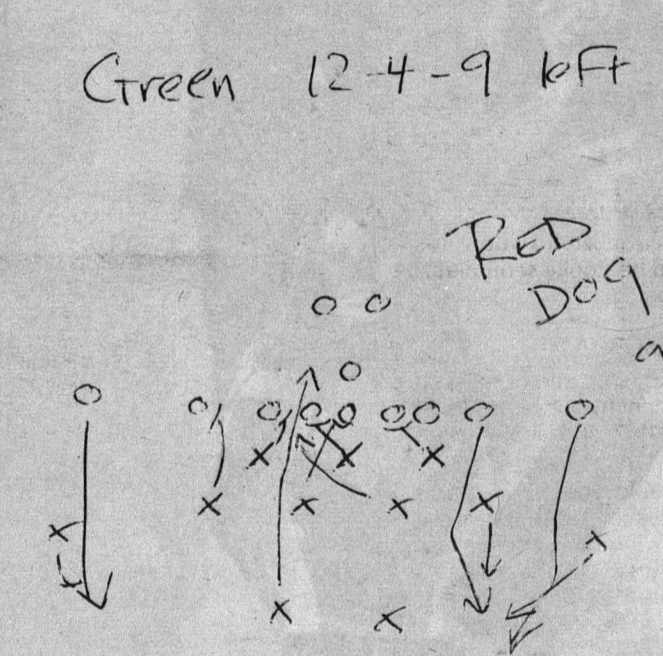 Green 12-4-9 left
RED
DOG
a